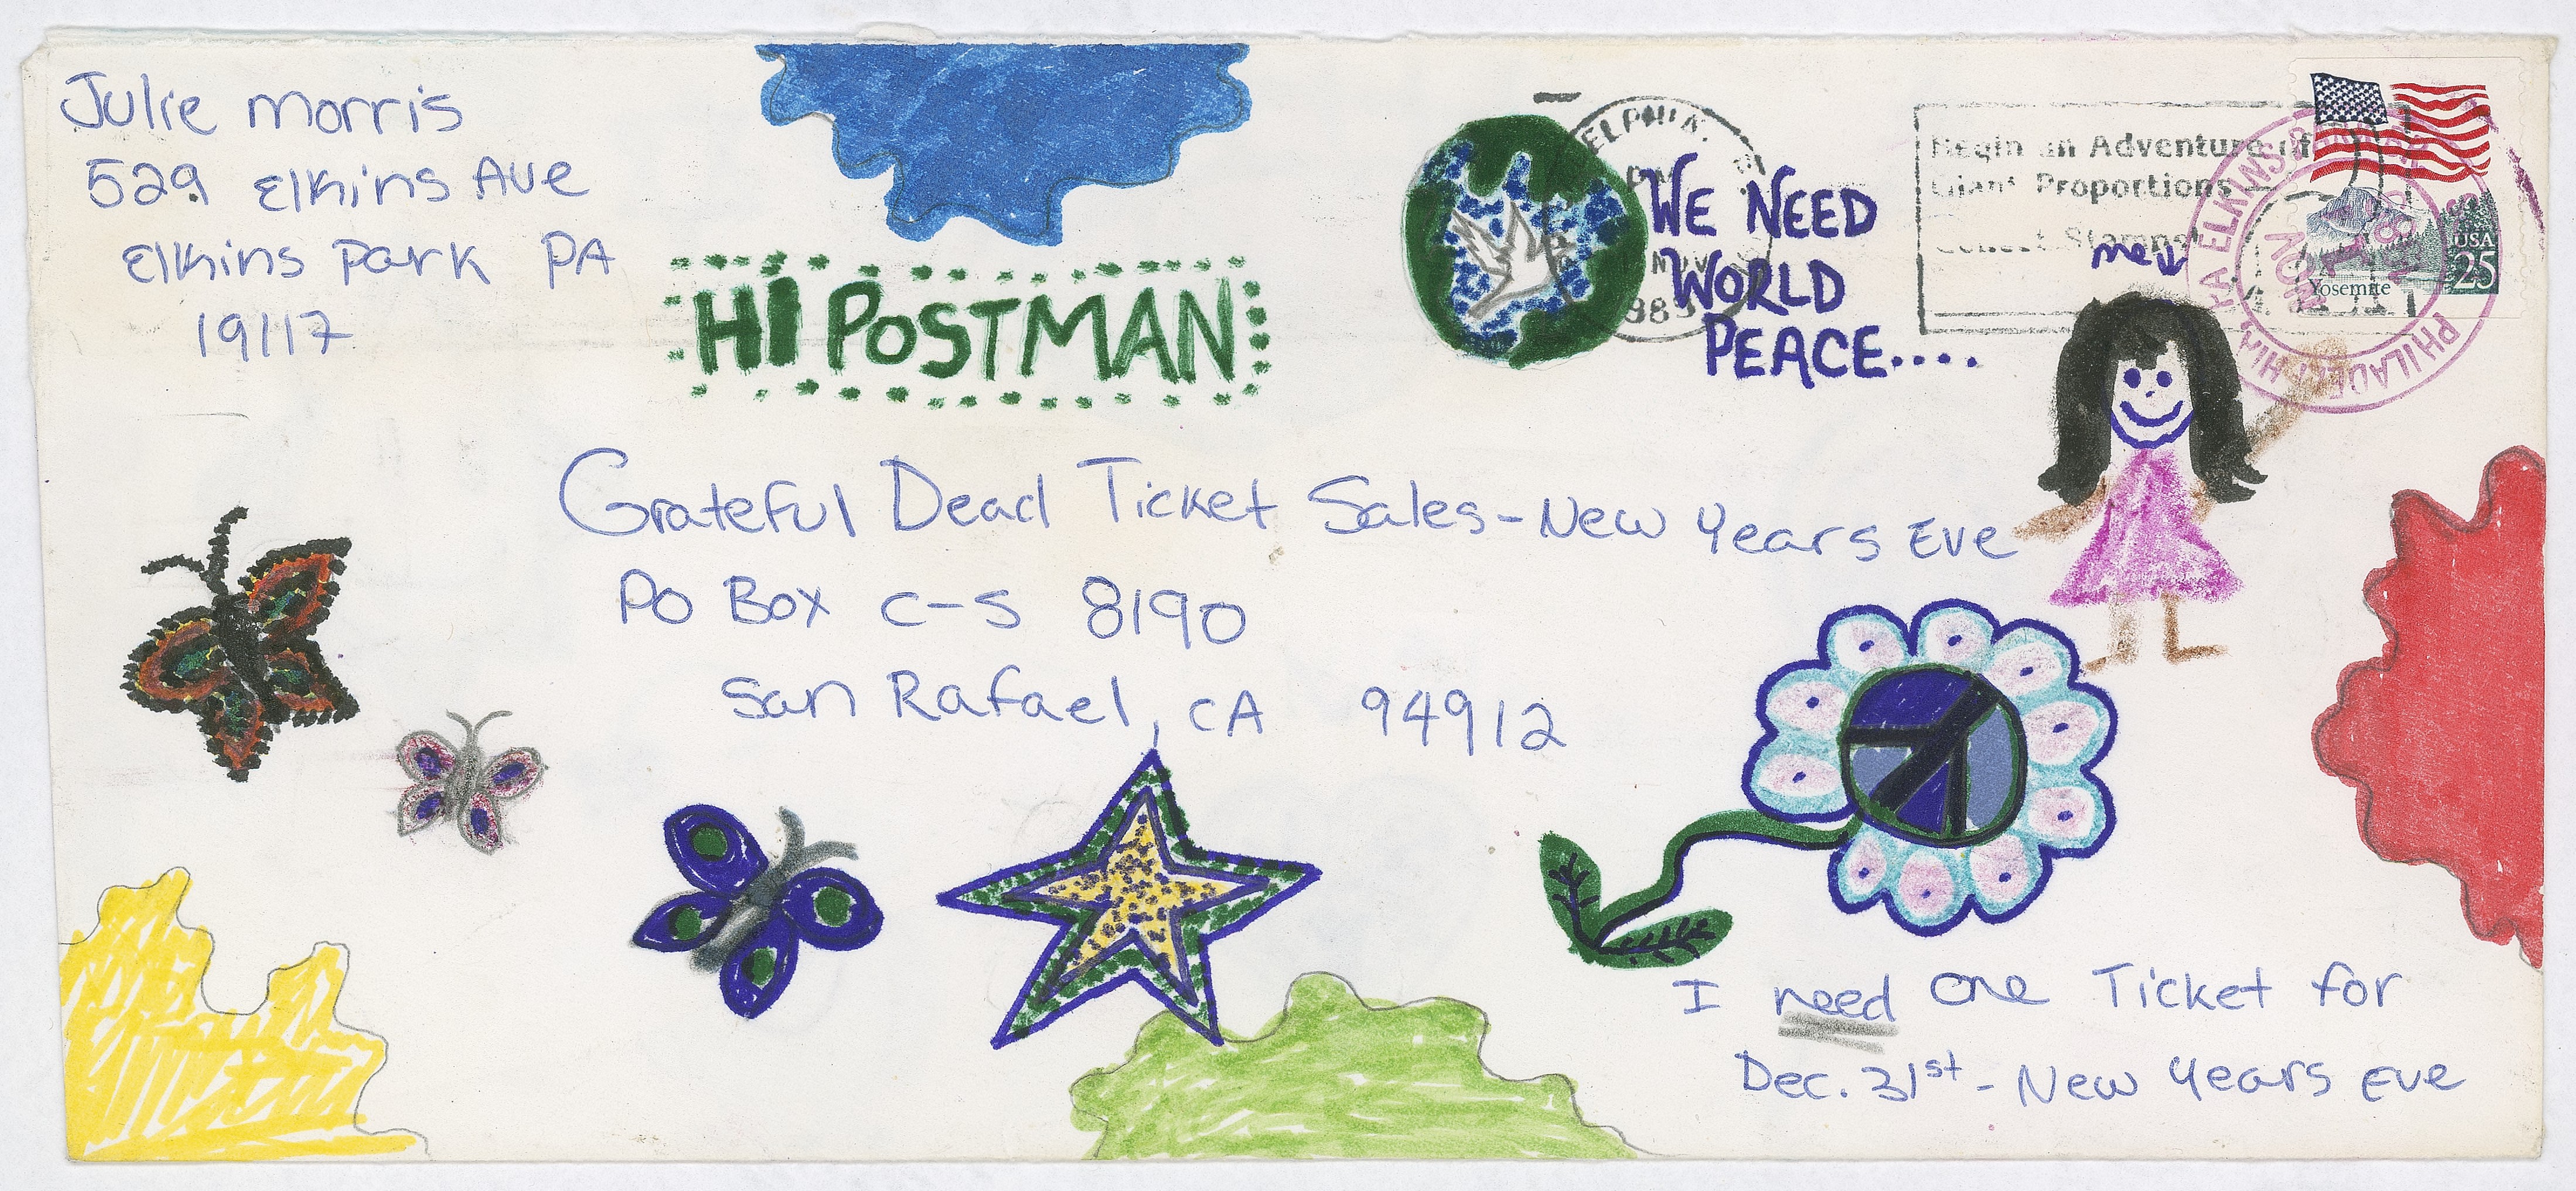 Julie Morris
529 Elkins Ave
Elkins Park PA
19117
HI POSTMAN
WE NEED
WORLD
PEACE....
Begin an Adventure of
Giant Proportions
Collect Stamps
me
USA
25
Yosemite
ELKINS PARK
PHILADELPHIA, PA
NOV
Grateful Dead Ticket Sales - New Years Eve
PO Box C-S 8190
San Rafael, CA 94912
I need one Ticket for
Dec. 31st - New Years Eve